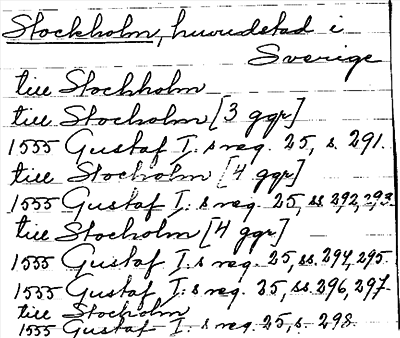 Stockholm, huvudstad i
Sverige
till Stockholm
till Stockholm [3 ggr]
1555 Gustaf I:s reg. 25, s. 291.
till Stocholm [4 ggr]
1555 Gustaf I:s reg. 25, ss. 292, 293.
till Stocholm [4 ggr]
1555 Gustaf I:s reg. 25, ss. 294, 295.
1555 Gustaf I:s reg. 25, ss. 296, 297.
till Stocholm
1555 Gustaf I:s reg. 25, s. 298.